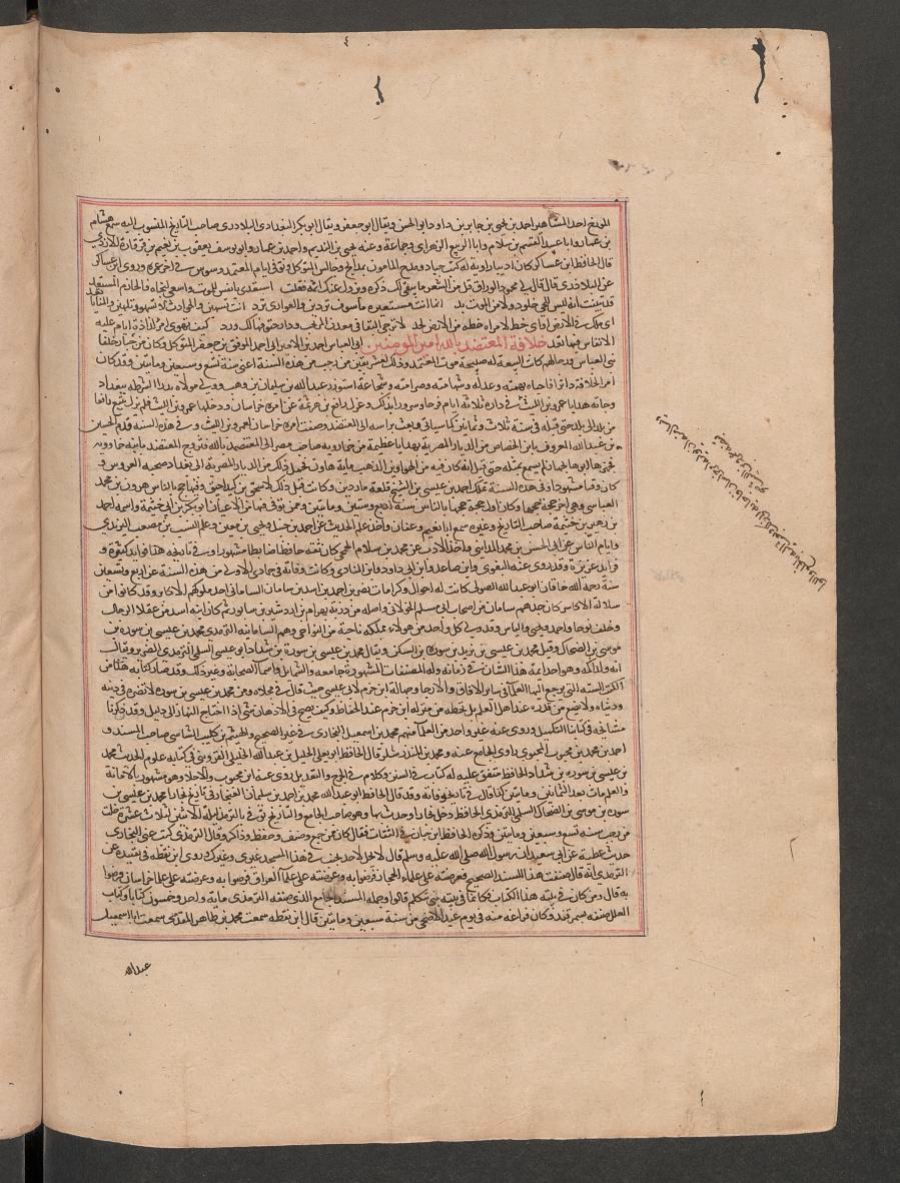 المورخ احد المشاهير احمد بن يحيى بن جابر بن داود ابو الحسن ويقال ابو جعفر ويقال ابو بكر البغدادى البلاذرى صاحب التاريخ المنسوب اليه سمع هشام
بن عمار وابا عبيد القسم بن سلام وابا الربيع الزهراني وجماعة وعنه يحيى بن النديم واحمد بن عمار وابو يوسف يعقوب بن نعيم بن قرقارة الازدي
قال الحافظ ابن عساكر كان اديبا راوية له كتب جياد ومدح المامون بمدايح وجالس المتوكل وتوفى ايام المعتمد ووسوس في اخر عمره وروى ابن عساكر
عن البلاذرى قال قال لي محمود الوراق قل من الشعر ما يبقى لك ذكره ويزول عنك اثمه فقلت استعدي يا نفس للموت واسعي لنجاة فالحازم المستعد
قد تبينت انه ليس للحي خلود ولا من الموت بد انما انت مستعيرة ما سوف تردين والعوارى ترد انت تسهين والحوادث لا تسهو وتلهين والمنايا تعد
اي ملك في الارض او اي حظ لامرء حظه من الارض لحد لا ترجي البقا في معدن الموت ودار حتوفها لك ورد كيف يهوى امرؤ لذاذة ايام عليه
الانفاس فيها تعد خلافة المعتضد بالله امير المومنين ابى العباس احمد بن الامير ابى احمد الموفق بن جعفر المتوكل وكان من خيار خلفا
بنى العباس ورجالهم كانت البيعة له صبيحة موت المعتمد وذلك لعشر بقين من رجب من هذه السنة اعني سنة تسع وسبعين ومايتين وقد كان
امر الخلافة داثرا فاحياه بهمته وعدله وشهامته وصرامته وشجاعة استوزر عبد الله بن سليمان بن وهب وولى مولاه بدرا الشرطة ببغداد
وجاته هدايا عمرو بن الليث في داره ثلاثة ايام فرحا وسرورا بذلك وعزل رافع بن هرثمة عن امرة خراسان ودخلها عمرو بن الليث فلم يزل يتبع رافعا
من بلد الى بلد حتى قتله في سنة ثلاث وثمانين كما سياتي وبعث براسه الى المعتضد وصفت امرة خراسان لعمرو بن الليث وفي هذه السنة قدم الحسين
بن عبد الله المعروف بابن الخصاص من الديار المصرية بهدايا عظيمة من خمارويه صاحب مصر الى المعتضد بالله فتزوج المعتضد بابنة خمارويه
فجهزها ابوها بجهاز لم يسمع بمثله حتى قيل انه كان فيه من الجهاز مائة هاون من الذهب فحمل ذلك من الديار المصرية الى بغداد صحبة العروس و
كان وقتا مشهودا وفي هذه السنة تملك احمد بن عيسى بن الشيخ قلعة ماردين وكانت قبل ذلك لاسحق بن كنداجيق وفيها حج بالناس هرون بن محمد
العباسي وهي اخر حجة حجها وكان اول حجة حجها بالناس سنة اربع وستين ومايتين وممن توفى فيها من الاعيان ابو بكر بن ابي خيثمة واسمه احمد
بن زهير بن خيثمة صاحب التاريخ وغيره سمع ابا نعيم وعفان واخذ علم الحديث عن احمد بن حنبل ويحيى بن معين وعلم النسب عن مصعب الزبيدي
وايام الناس عن ابى الحسن بن محمد المدايني واخذ الادب عن محمد بن سلام الجمحي كان ثقة حافظا ضابطا مشهورا وفي تاريخه هذا فوايد كثيرة و
فرايد غزيرة وقد روى عنه البغوى وابن صاعد وابن ابي داود وابن المنادى وكانت وفاته في جمادى الاولى من هذه السنة عن اربع وتسعين
سنة رحمه الله خاقان ابو عبد الله الصوفى كانت له احوال وكرامات نصر بن احمد بن اسد بن سامان السامانى احد ملوكهم الاكابر وقد كانوا من
سلالة الاكاسرة كان جدهم سامان من اصحاب ابى مسلم الخولانى واصله من ذرية بهرام بن اردشير بن سابور ثم كان ابنه اسد من عقلا الرجال
وخلف نوحا واحمد ويحيى والياس وقد ولى كل واحد من هولاء مملكة ناحية من النواحى وهم السامانية الترمذى محمد بن عيسى بن سورة بن
موسى بن الضحاك وقيل محمد بن عيسى بن يزيد بن سورة بن السكن ويقال محمد بن عيسى بن سورة بن شداد ابو عيسى السلمى الترمذى الضرير ويقال
انه ولد اكمه وهو احد ايمة هذا الشان في زمانه وله المصنفات المشهورة جامعه والشمايل واسما الصحابة وغير ذلك وقد صار كتابه هذا من
الكتب الستة التي يرجع اليها العلما في ساير الافاق والارجا وجهالة ابن حزم لابى عيسى حيث قال في محلاه ومن محمد بن عيسى بن سورة لا تضره في دينه
ودنياه ولا تضع من قدره عند اهل العلم بل تحطه من منزلة ابن حزم عند الحفاظ وكيف يصح في الاذهان شي اذا احتاج النهار الى دليل وقد ذكرنا
مشايخه في كتابنا التكميل وروى عنه غير واحد من العلما منهم محمد بن اسمعيل البخارى في غير الصحيح والهيثم بن كليب الشاسي صاحب المسند و
احمد بن محمد بن محبوب المحبوبى راوى الجامع عنه ومحمد بن المنذر شكر قال الحافظ ابو يعلى الخليل بن عبد الله الخليلى القزوينى في كتابه علوم الحديث محمد
بن عيسى بن سورة بن شداد الحافظ متفق عليه له كتاب في السنن وكلام في الجرح والتعديل روى عنه ابن محبوب والاجلا وهو مشهور بالامانة
والعلم مات بعد الثمانين ومايتين كذا قال في تاريخ وفاته وقد قال الحافظ ابو عبد الله محمد بن احمد بن سليمان الغنجار في تاريخ بخارا محمد بن عيسى بن
سورة بن موسى بن الضحاك السلمى الترمذى الحافظ دخل بخارا وحدث بها وهو صاحب الجامع والتاريخ توفى بالترمذ ليلة الاثنين لثلاث عشرة خلت
من رجب سنة تسع وسبعين ومايتين وذكره الحافظ ابن حبان في الثقات فقال كان ممن جمع وصنف وحفظ وذاكر وقال الترمذى كتب عنى البخارى
حديث عطية عن ابى سعيد ان رسول الله صلى الله عليه وسلم قال لا يحل لاحد يجنب في هذا المسجد غيري وغيرك وروى ابن نقطة في تقييده عن
الترمذى انه قال صنفت هذا المسند الصحيح فعرضته على علما الحجاز فرضوا به وعرضته على علما العراق فرضوا به وعرضته على علما خراسان فرضوا
به قال ومن كان في بيته هذا الكتاب فكانما في بيته نبي يتكلم قالوا وجملة المسند الجامع الذى صنفه الترمذى ماية وواحد وخمسون كتابا وكتاب
العلل صنفه بسمرقند وكان فراغه منه في يوم عيد الاضحى من سنة سبعين ومايتين قال ابن نقطة سمعت محمد بن طاهر المقدسى سمعت ابا اسمعيل
عبد الله